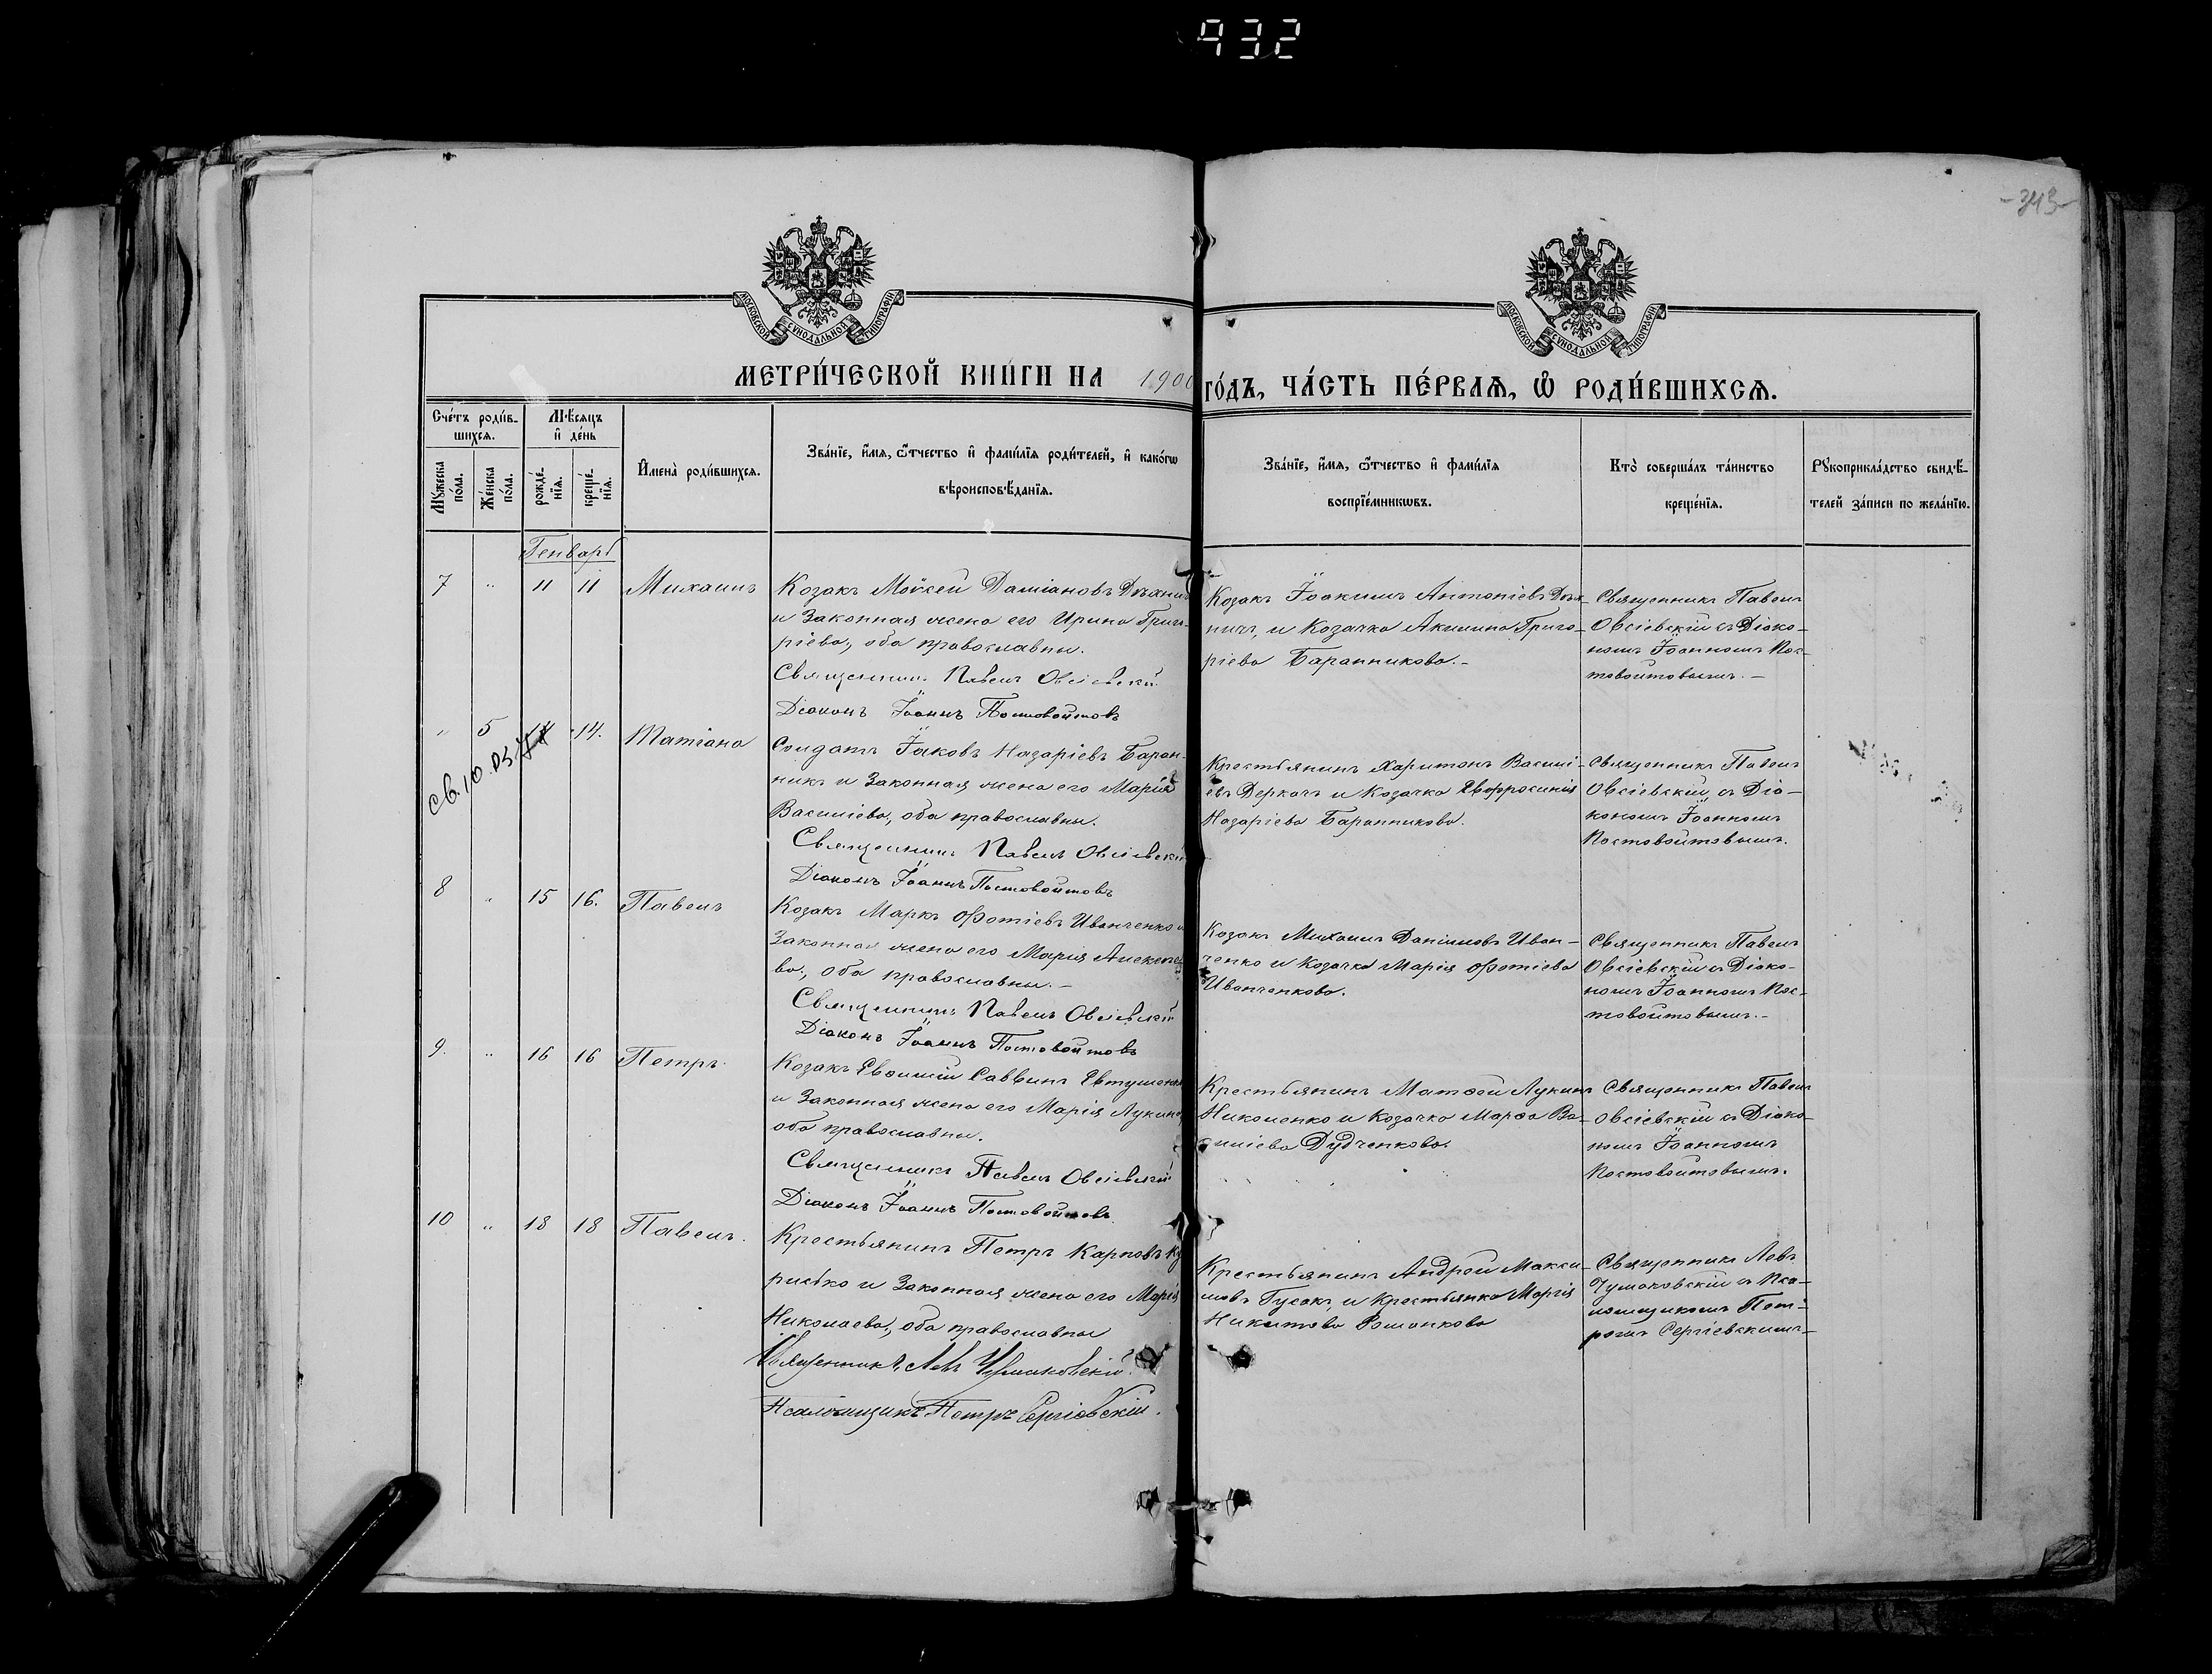 932
343
МОСКОВСКОЙ СѴНОДАЛЬНОЙ ТИПОГРАФІИ
МОСКОВСКОЙ СѴНОДАЛЬНОЙ ТИПОГРАФІИ
МЕТРИ́ЧЕСКОЙ КНИ́ГИ НА 1900 ГО́ДЪ, ЧА́СТЬ ПЕ́РВАѦ, Ѽ РОДИ́ВШИХСѦ.
Сче́тъ роди́в-
шихсѧ.
Мѣ́сѧцъ
и҆ де́нь
Мꙋ́жеска по́ла.
Же́нска по́ла.
рожде́-
нїѧ.
креще́-
нїѧ.
И҆мена̀ роди́вшихсѧ.
Зва́нїе, и҆́мѧ, ѻ҆́тчество и҆ фами́лїѧ роди́телей, и҆ како́гѡ
вѣроисповѣ́данїѧ.
Зва́нїе, и҆́мѧ, ѻ҆́тчество и҆ фами́лїѧ
воспрїе́мникѡвъ.
Кто̀ соверша́лъ та́инство
креще́нїѧ.
Рꙋкоприкла́дство свидѣ́-
телей за́писи по жела́нїю.
Генварь
7 " 11 11 Михаилъ
Козакъ Моѵсей Даміановъ
и Законная жена его Ирина Григо-
ріева, оба православны.
Священникъ Павелъ Овсіевскій
Діаконъ Іоаннъ Постовойтовъ
Козакъ Іоакимъ Антоніевъ
ничъ, и Козачка Акилина Григо-
ріева Баранникова.-
Священникъ Павелъ
Овсіевскій съ Діако-
номъ Іоанномъ Пос-
товойтовымъ.-
" 5 14. Татіана
Св. 10.05.
Солдатъ Іаковъ Назаріевъ Баран-
никъ и Законная жена его Марія
Василіева, оба православны.
Священникъ Павелъ Овсіевскій
Діаконъ Іоаннъ Постовойтовъ
Крестьянинъ Харитонъ Василі-
евъ Деркачъ и Козачка Евфросинія
Назаріева Баранникова.
Священникъ Павелъ
Овсіевскій съ Діа-
кономъ Іоанномъ
Постовойтовымъ.
8 " 15 16. Павелъ
Козакъ Маркъ Фотіевъ Иванченко и
Законная жена его Марія Алексее-
ва, оба православны.-
Священникъ Павелъ Овсіевскій
Діаконъ Іоаннъ Постовойтовъ
Козакъ Михаилъ Даніиловъ Иван-
ченко и Козачка Марія Фотіева
Иванченкова.
Священникъ Павелъ
Овсіевскій съ Діако-
номъ Іоанномъ Пос-
товойтовымъ.-
9. " 16 16 Петръ.
Козакъ Евѳимій Саввинъ Евтушенко
и Законная жена его Марія Лукина,
оба православны.
Священникъ Павелъ Овсіевскій
Діаконъ Іоаннъ Постовойтовъ
Крестьянинъ Матѳей Лукинъ
Николенко и Козачка Марѳа Ва-
силіева Дудченкова.
Священникъ Павелъ
Овсіевскій съ Діако-
номъ Іоанномъ
Постовойтовымъ.
10 " 18 18 Павелъ.
Крестьянинъ Петръ Карповъ
и Законная жена его Марія
Николаева, оба православны
Священникъ Левъ Чумаковскій.
Псаломщикъ Петръ Сергіевскій.
Крестьянинъ Андрей Макси-
мовъ Гусакъ, и Крестьянка Марія
Никитова Романкова
Священникъ Левъ
Чумаковскій съ Пса-
ломщикомъ Пет-
ромъ Сергіевскимъ-